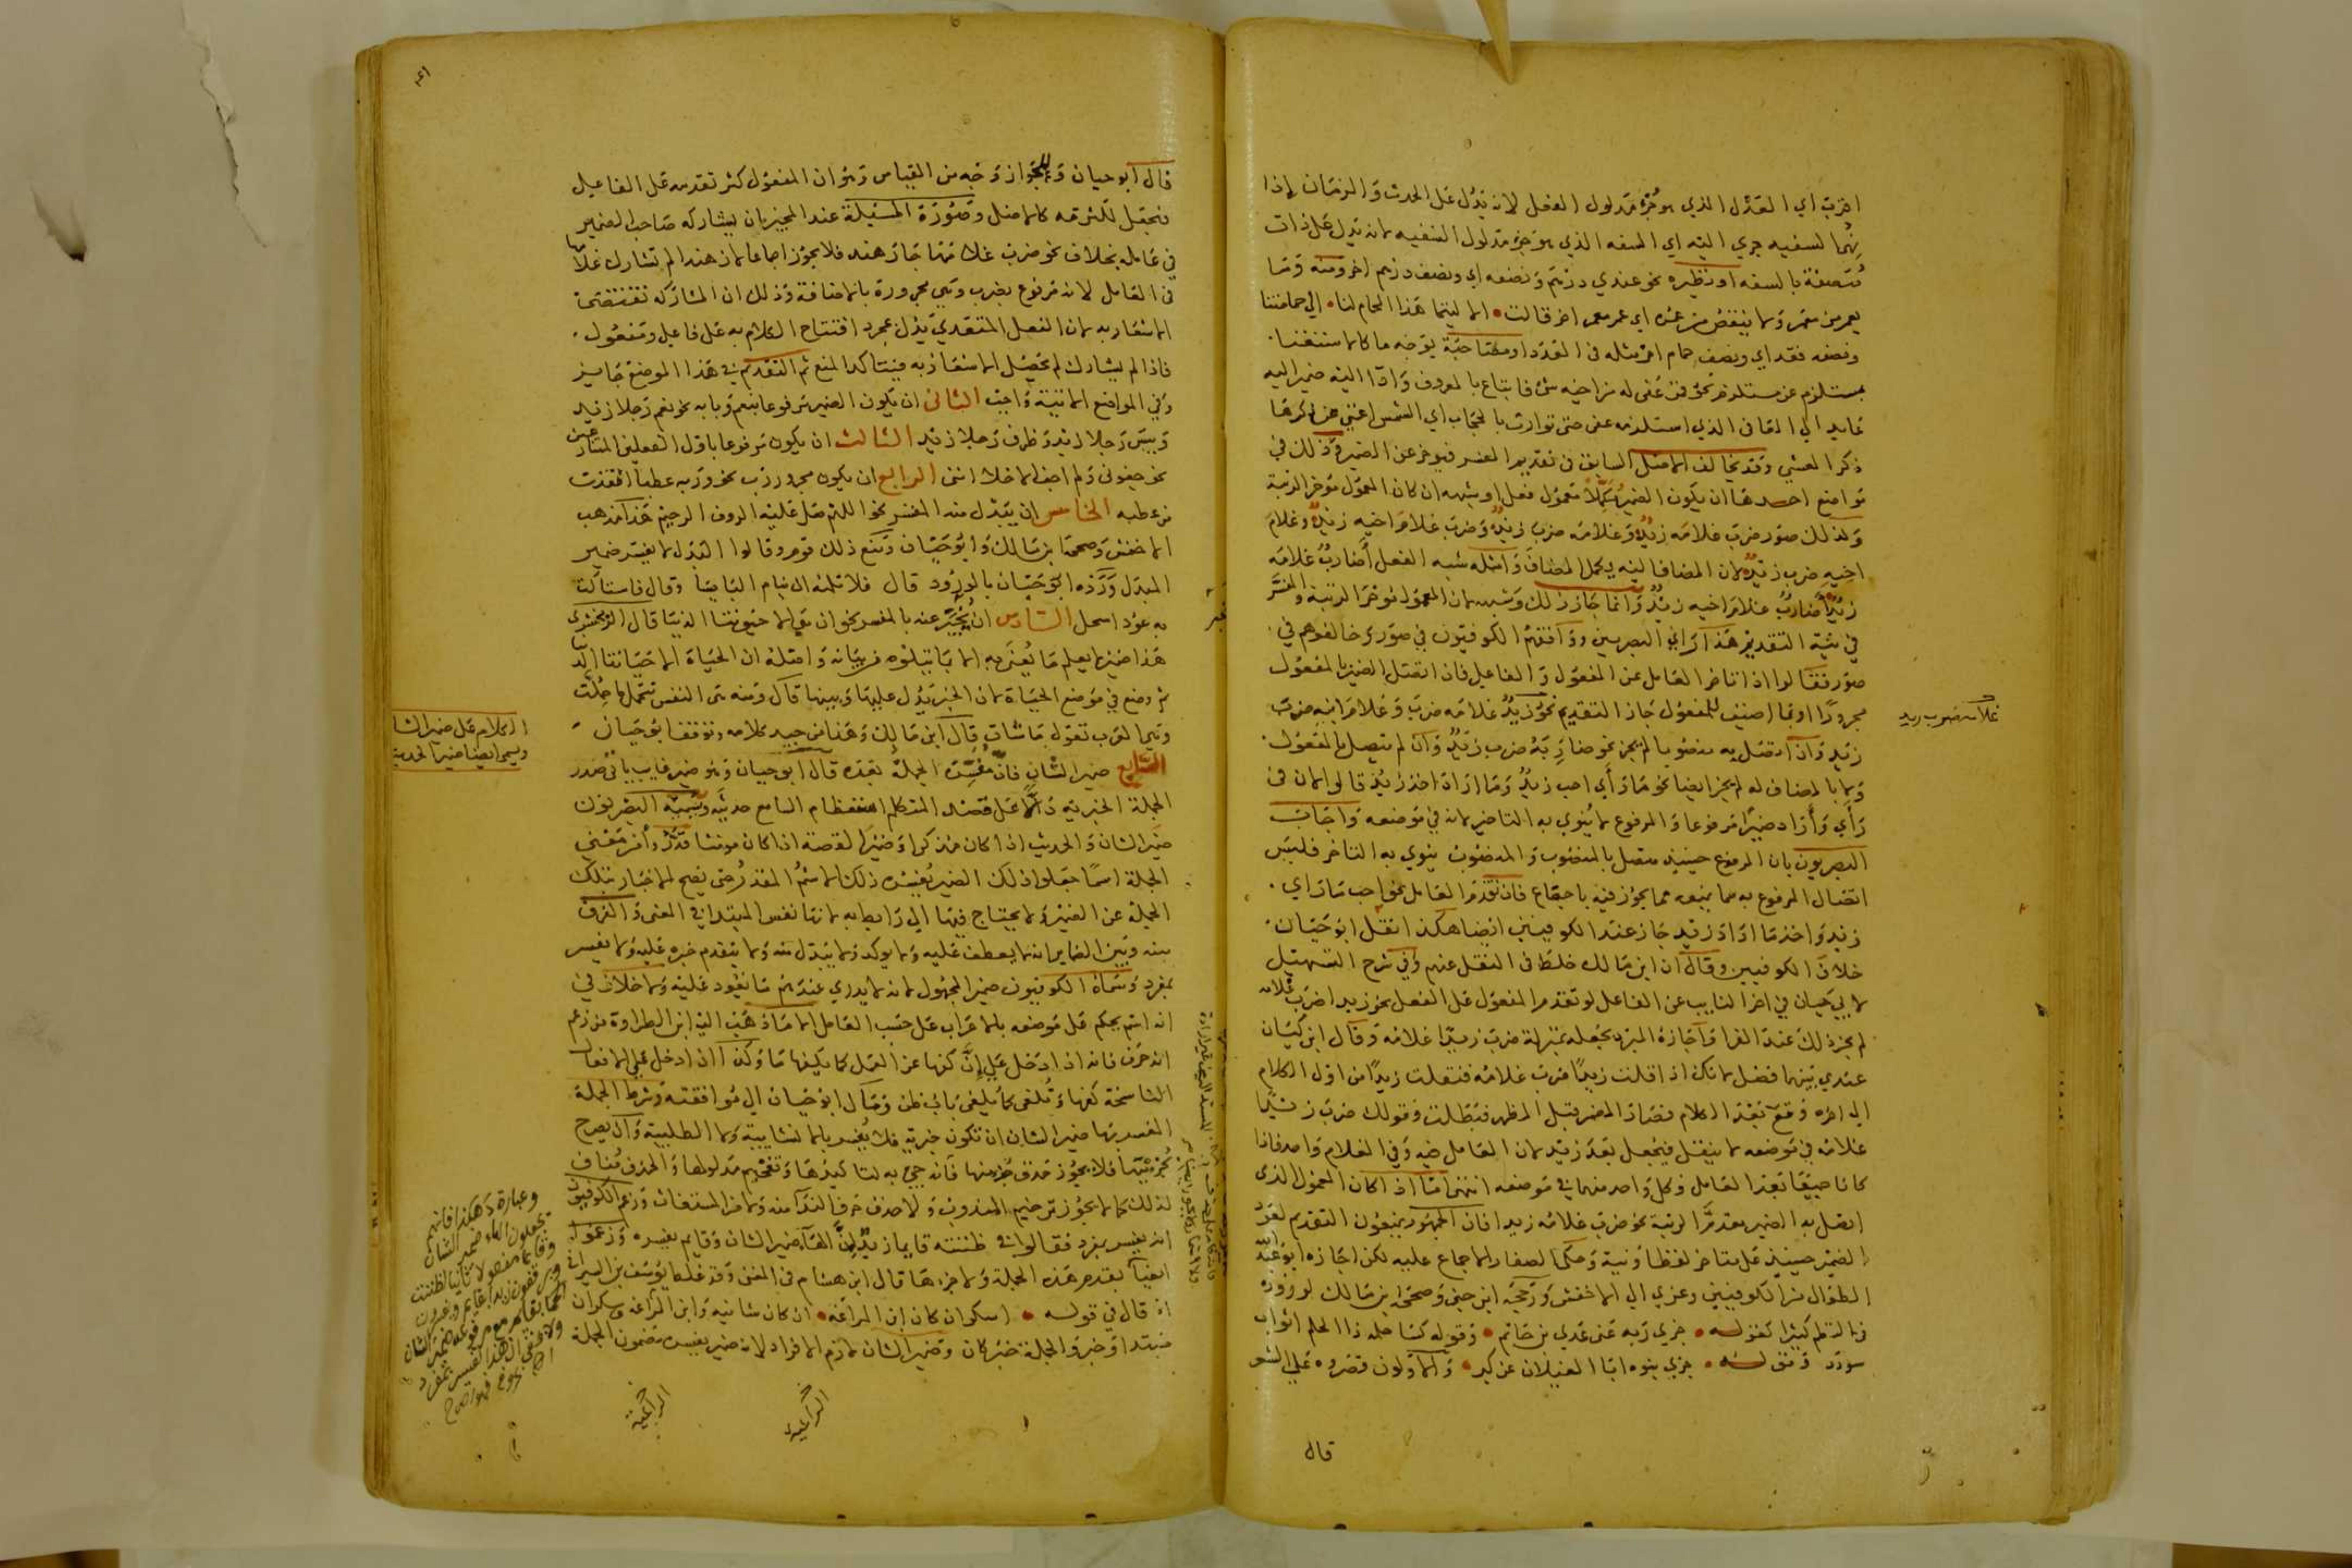 اقرب اي العدل الذي هو جزء مدلول الفعل لانه يدل على الحدث والزمان اذا
نهى السفيه جري اليه اي السفه الذي هو جزء مدلول السفيه لانه يدل على ذات
متصفة بالسفه او نظيره نحو عندي درهم ونصفه اي ونصف درهم اخر ومنه وما
يعمر من معمر ولا ينقص من عمره اي عمر معمر اخر قالت الا ليتما هذا الحمام لنا الى حمامتنا
ونصفه فقد اي ونصف حمام اخر مثله في العدد او مصاحبة بوجه ما كالاستغنا
بمستلزم عن مستلزم نحو فمن عفي له من اخيه شئ فاتباع بالمعروف واداء اليه ضمير اليه
عايد الى العافي الذي استلزمه عفي حتى توارت بالحجاب اي الشمس اغنى عن ذكرها
ذكر العشي وقد يخالف الاصل السابق في تقديم المفسر فيوخر عن الضمير وذلك في
مواضع احدها ان يكون الضمير مكملا معمول فعل او شبهه ان كان المعمول موخر الرتبة
ولذلك صور ضرب غلامه زيد وغلامه ضرب زيد وضرب غلام اخيه زيد وغلام
اخيه ضرب زيد لان المضاف اليه يكمل المضاف وامثله شبه الفعل أضارب غلامه
زيد أضارب غلام اخيه زيد وانما جاز ذلك وشبهه لان المعمول موخر الرتبة والمفسر
في نية التقديم هذا راي البصريين ووافقهم الكوفيون في صور وخالفوهم في
صور فقالوا اذا تاخر العامل عن المفعول والفاعل فان اتصل الضمير بالمفعول
مجرورا او بما اضيف للمفعول جاز التقديم نحو زيد غلامه ضرب وغلام ابنه ضرب
زيد وان اتصل به منصوبا لم يجز نحو ضاربه ضرب زيد وان لم يتصل بالمفعول
ولا بالمضاف له لم يجز ايضا نحو ما رأي احب زيد وما اراد اخذ زيد قالوا لان في
رأي وأراد ضميرا مرفوعا والمرفوع لا ينوي به التاخير لانه في موضعه واجاب
البصريون بان المرفوع حينئذ متصل بالمنصوب والمنصوب ينوي به التاخر فليس
اتصال المرفوع به مما يمنعه مما يجوز فيه باجماع فان تقدم العامل نحو احب ما راي
زيد واخذ ما اراد زيد جاز عند الكوفيين ايضا هكذا نقل ابو حيان
خلاف الكوفيين وقال ان ابن مالك خلط في النقل عنهم وفي شرح التسهيل
لابي حيان في اخر النايب عن الفاعل لو تقدم المفعول على الفعل نحو زيدا ضرب غلامه
لم يجز ذلك عند الفرا واجازه المبرد بجعله بمنزلة ضرب زيدا غلامه وقال ابن كيسان
عندي بينهما فصل لانك اذا قلت زيدا ضرب غلامه فنقلت زيدا من اول الكلام
الى اخره وقع بعد الكلام فصار المضمر قبل المظهر فبطلت وقولك ضرب زيدا
غلامه في موضعه لا ينقل فيجعل بعد زيد لان العامل فيه وفي الغلام واحد فاذا
كانا جميعا بعد العامل فكل واحد منهما في موضعه انتهى اما اذا كان المعمول الذي
اتصل به الضمير مقدم الرتبة نحو ضرب غلامه زيدا فان الجمهور يمنعون التقديم لعود
الضمير حينئذ على متاخر لفظا ونية وحكى الصفار الاجماع عليه لكن اجازه ابو عبد الله
الطوال من الكوفيين وعزي الى الاخفش ورجحه ابن جني وصححه ابن مالك لوروده
في النظم كثيرا كقوله جزي ربه عني عدي بن حاتم وقوله كسا حلمه ذا الحلم اثواب
سودد وقوله جزي بنوه ابا الغيلان عن كبر والاولون قصروه على الشعر
قال
غلامه ضرب زيد
قال ابو حيان وللجواز وجه من القياس وهو ان المفعول كثر تقدمه على الفاعل
فيجعل لكثرته كالاصل وصورة المسئلة عند المجيز بان يشاركه صاحب الضمير
في عامله بخلاف نحو ضرب غلامها جار هند فلا يجوز اجماعا لان هندا لم تشارك غلامها
في العامل لانه مرفوع بضرب وهي مجرورة بالاضافة وذلك ان المشاركة تقتضي
الاشعار به لان الفعل المتعدي يدل بمجرد افتتاح الكلام به على فاعل ومفعول
فاذا لم يشارك لم يحصل الاشعار به فيتاكد المنع ثم التقديم في هذا الموضع جايز
وفي المواضع الاتية واجب الثاني ان يكون الضمير مرفوعا بنعم وبابه نحو نعم رجلا زيد
وبيس رجلا زيد وظرف رجلا زيد الثالث ان يكون مرفوعا باول الفعلين المتنازعين
نحو جفوني ولم اجف الاخلا انني الرابع ان يكون مجرور رب نحو وربه عطبا انقذت
من عطبه الخامس ان يبدل منه المفسر نحو اللهم صل عليه الروف الرحيم هذا مذهب
الاخفش وصححه ابن مالك وابو حيان ومنع ذلك قوم وقالوا البدل لا يفسر ضمير
المبدل ورده ابو حيان بالورود قال فلا تلمه ان ينام البايسا وقال فاستاكت
به عود اسحل السادس ان يخبر عنه بالمفسر نحو ان هي الا حيوتنا الدنيا قال الزمخشري
هذا ضمير لا يعلم ما يعنى به الا بما يتلوه من بيانه واصله ان الحياة الا حياتنا الدنيا
ثم وضع هي موضع الحياة لان الخبر يدل عليها ويبينها قال ومنه هي النفس تتحمل ما حملت
وهي العرب تقول ما شات قال ابن مالك وهذا من جيد كلامه وتوقف ابو حيان
السابع ضمير الشان فان مفسره الجملة بعده قال ابو حيان وهو ضمير غايب ياتي صدر
الجملة الخبرية دالا على قصد المتكلم استعظام السامع حديثه وتسميه البصريون
ضمير الشان والحديث اذا كان مذكرا وضمير القصة اذا كان مونثا قدروا من معني
الجملة اسما جعلوا ذلك الضمير يفسره ذلك الاسم المقدر حتى يصح الاخبار بتلك
الجملة عن الضمير ولا يحتاج فيها الى رابط به لانها نفس المبتدا في المعنى والفرق
بينه وبين الضماير انه لا يعطف عليه ولا يوكد ولا يبدل منه ولا يتقدم خبره عليه ولا يفسر
بمفرد وسماه الكوفيون ضمير المجهول لانه لا يدري عندهم ما يعود عليه ولا خلاف في
انه اسم يحكم على موضعه بالاعراب على حسب العامل الا ما ذهب اليه ابن الطراوة من زعم
انه حرف فانه اذا دخل على إنّ كفها عن العمل كما تكفها ما وكذا اذا دخل على الافعال
الناسخة كفها وتلغى كما يلغى باب ظن ومال ابو حيان الى موافقته وشرط الجملة
المفسر بها ضمير الشان ان تكون خبرية فلا يفسر بالانشائية ولا الطلبية وان يصرح
بجزئيها فلا يجوز حذف جزء منها فانه جيء به لتاكيدها وتفخيم مدلولها والحذف مناف
لذلك كما لا يجوز ترخيم المندوب ولا حذف حرف الندا منه ولا من المستغاث وزعم الكوفيون
انه يفسر بمفرد فقالوا في ظننته قايما زيد ان الهاء ضمير الشان وقايم يفسره وزعموا
ايضا تقدم هذه الجملة ولا جزءها قال ابن هشام في المغنى وقد غلط يوسف بن السيرافي
اذ قال في قوله اسكران كان ابن المراغة ان كان شانية وابن المراغة وسكران
مبتدا وخبر والجملة خبر كان وضمير الشان لازم الافراد لانه ضمير يفسره مضمون الجملة
الكلام على ضمير الشان
ويسمى ايضا ضمير الحديث